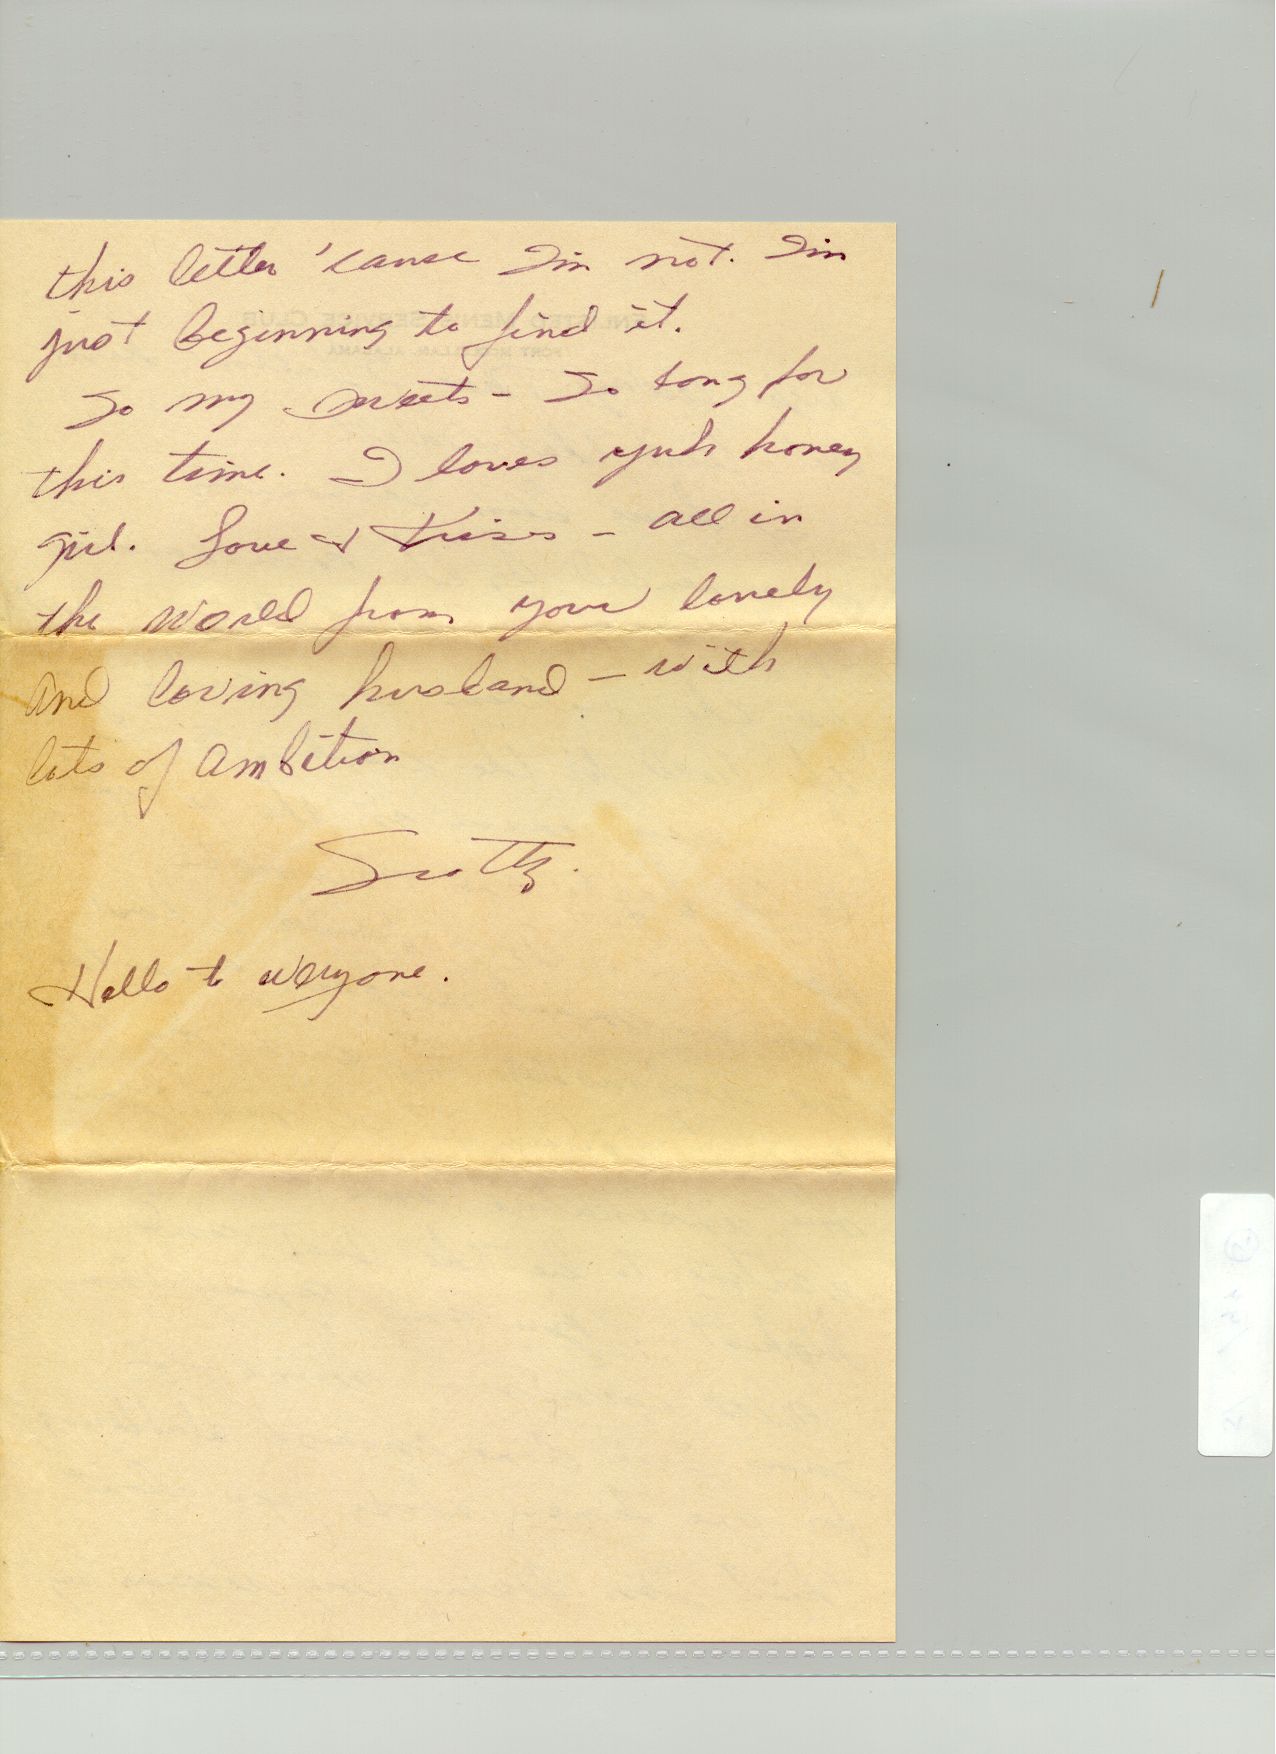 this letter 'cause I'm not. I'm
just beginning to find it.
So my sweets - So long for
this time. I loves yuh honey
girl. Love & Kisses - all in
the world from your lonely
and loving husband - with
lots of ambition
Scotty.
Hello to everyone.